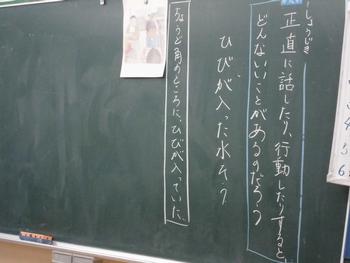 しょうじき
正直に話したり、行動したりすると、
どんないいことがあるのだろう
ひびが入った水そう
ちょうど角のところに、ひびが入っていた。